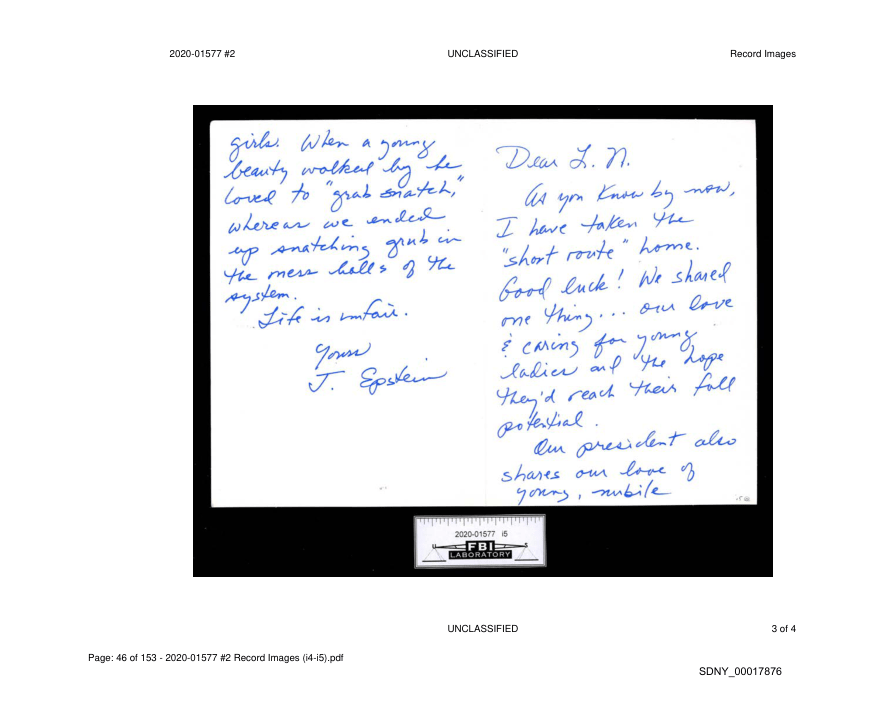 2020-01577 #2 UNCLASSIFIED Record Images
Dear L. N.
As you know by now,
I have taken the
"short route" home.
Good luck! We shared
one thing... our love
& caring for young
ladies and the hope
they'd reach their full
potential.
Our president also
shares our love of
young, nubile
girls. When a young
beauty walked by he
loved to "grab snatch,"
whereas we ended
up snatching grub in
the mess halls of the
system.
Life is unfair.
Yours
J. Epstein
2020-01577 i5
U S
FBI
LABORATORY
UNCLASSIFIED 3 of 4
Page: 46 of 153 - 2020-01577 #2 Record Images (i4-i5).pdf
SDNY_00017876